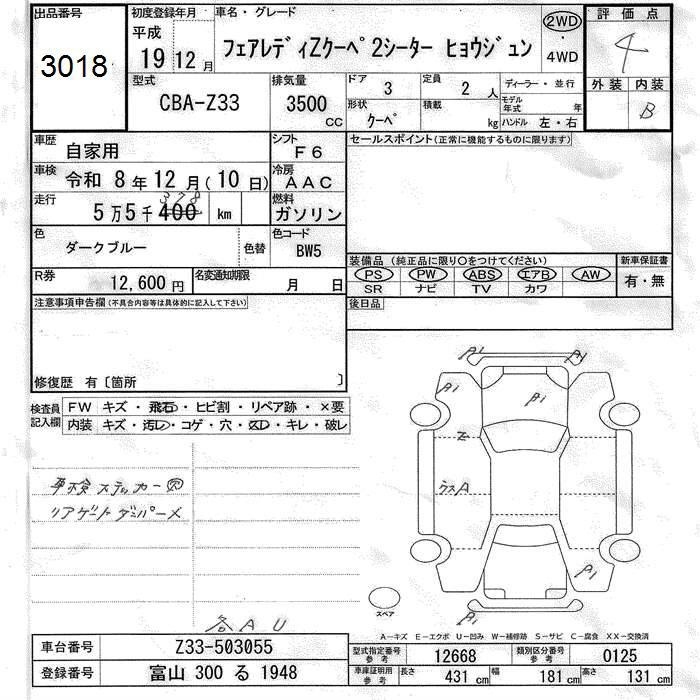 出品番号
3018
初度登録年月
平成
19 12 月
車名・グレード
フェアレディZクーペ 2シーター ヒョウジュン
2WD
・
4WD
評価点
4
外装 内装
B
型式
CBA-Z33
排気量
3500
CC
ドア
3
定員
2 人
形状
クーペ
積載
kg
ディーラー・並行
モデル年式
年
ハンドル 左・右
車歴
自家用
シフト
F6
車検
令和 8 年 12 月 (10 日)
冷房
AAC
走行
378
5 万 5 千 400 km
燃料
ガソリン
色
ダークブルー
色替
色コード
BW5
R券
12,600 円
名変通知期限
月 日
セールスポイント(正常に機能するものに限ります)
装備品(純正品に限り〇をつけてください)
PS PW ABS エアB AW
SR ナビ TV カワ
新車保証書
有・無
後日品
注意事項申告欄(不具合内容等は具体的に記入して下さい)
修復歴 有〔箇所 〕
検査員
記入欄
FW キズ・飛石・ヒビ割・リペア跡・×要
内装 キズ・汚レ・コゲ・穴・スレ・キレ・破レ
車検ステッカー
リアゲートダンパー×
各AU
β1
β1
β1
β1
Z
ウスA
β1
β1
スペア
A-キズ E-エクボ U-凹み W-補修跡 S-サビ C-腐食 XX-交換済
車台番号
Z33-503055
登録番号
富山 300 る 1948
型式指定番号
参考
12668
類別区分番号
参考
0125
車庫証明用
参考
長さ
431 cm
幅
181 cm
高さ
131 cm